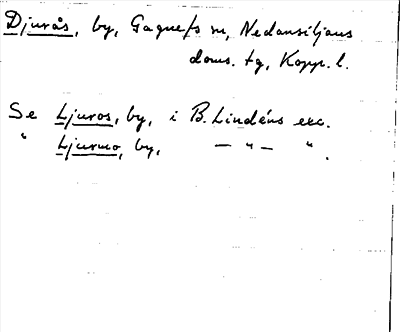 Djurås, by, Gagnefs sn, Nedansiljans
doms. tg, Kopp. l.
Se Ljuros, by, i B. Lindéns exc.
" Ljurmo, by, — " — " .